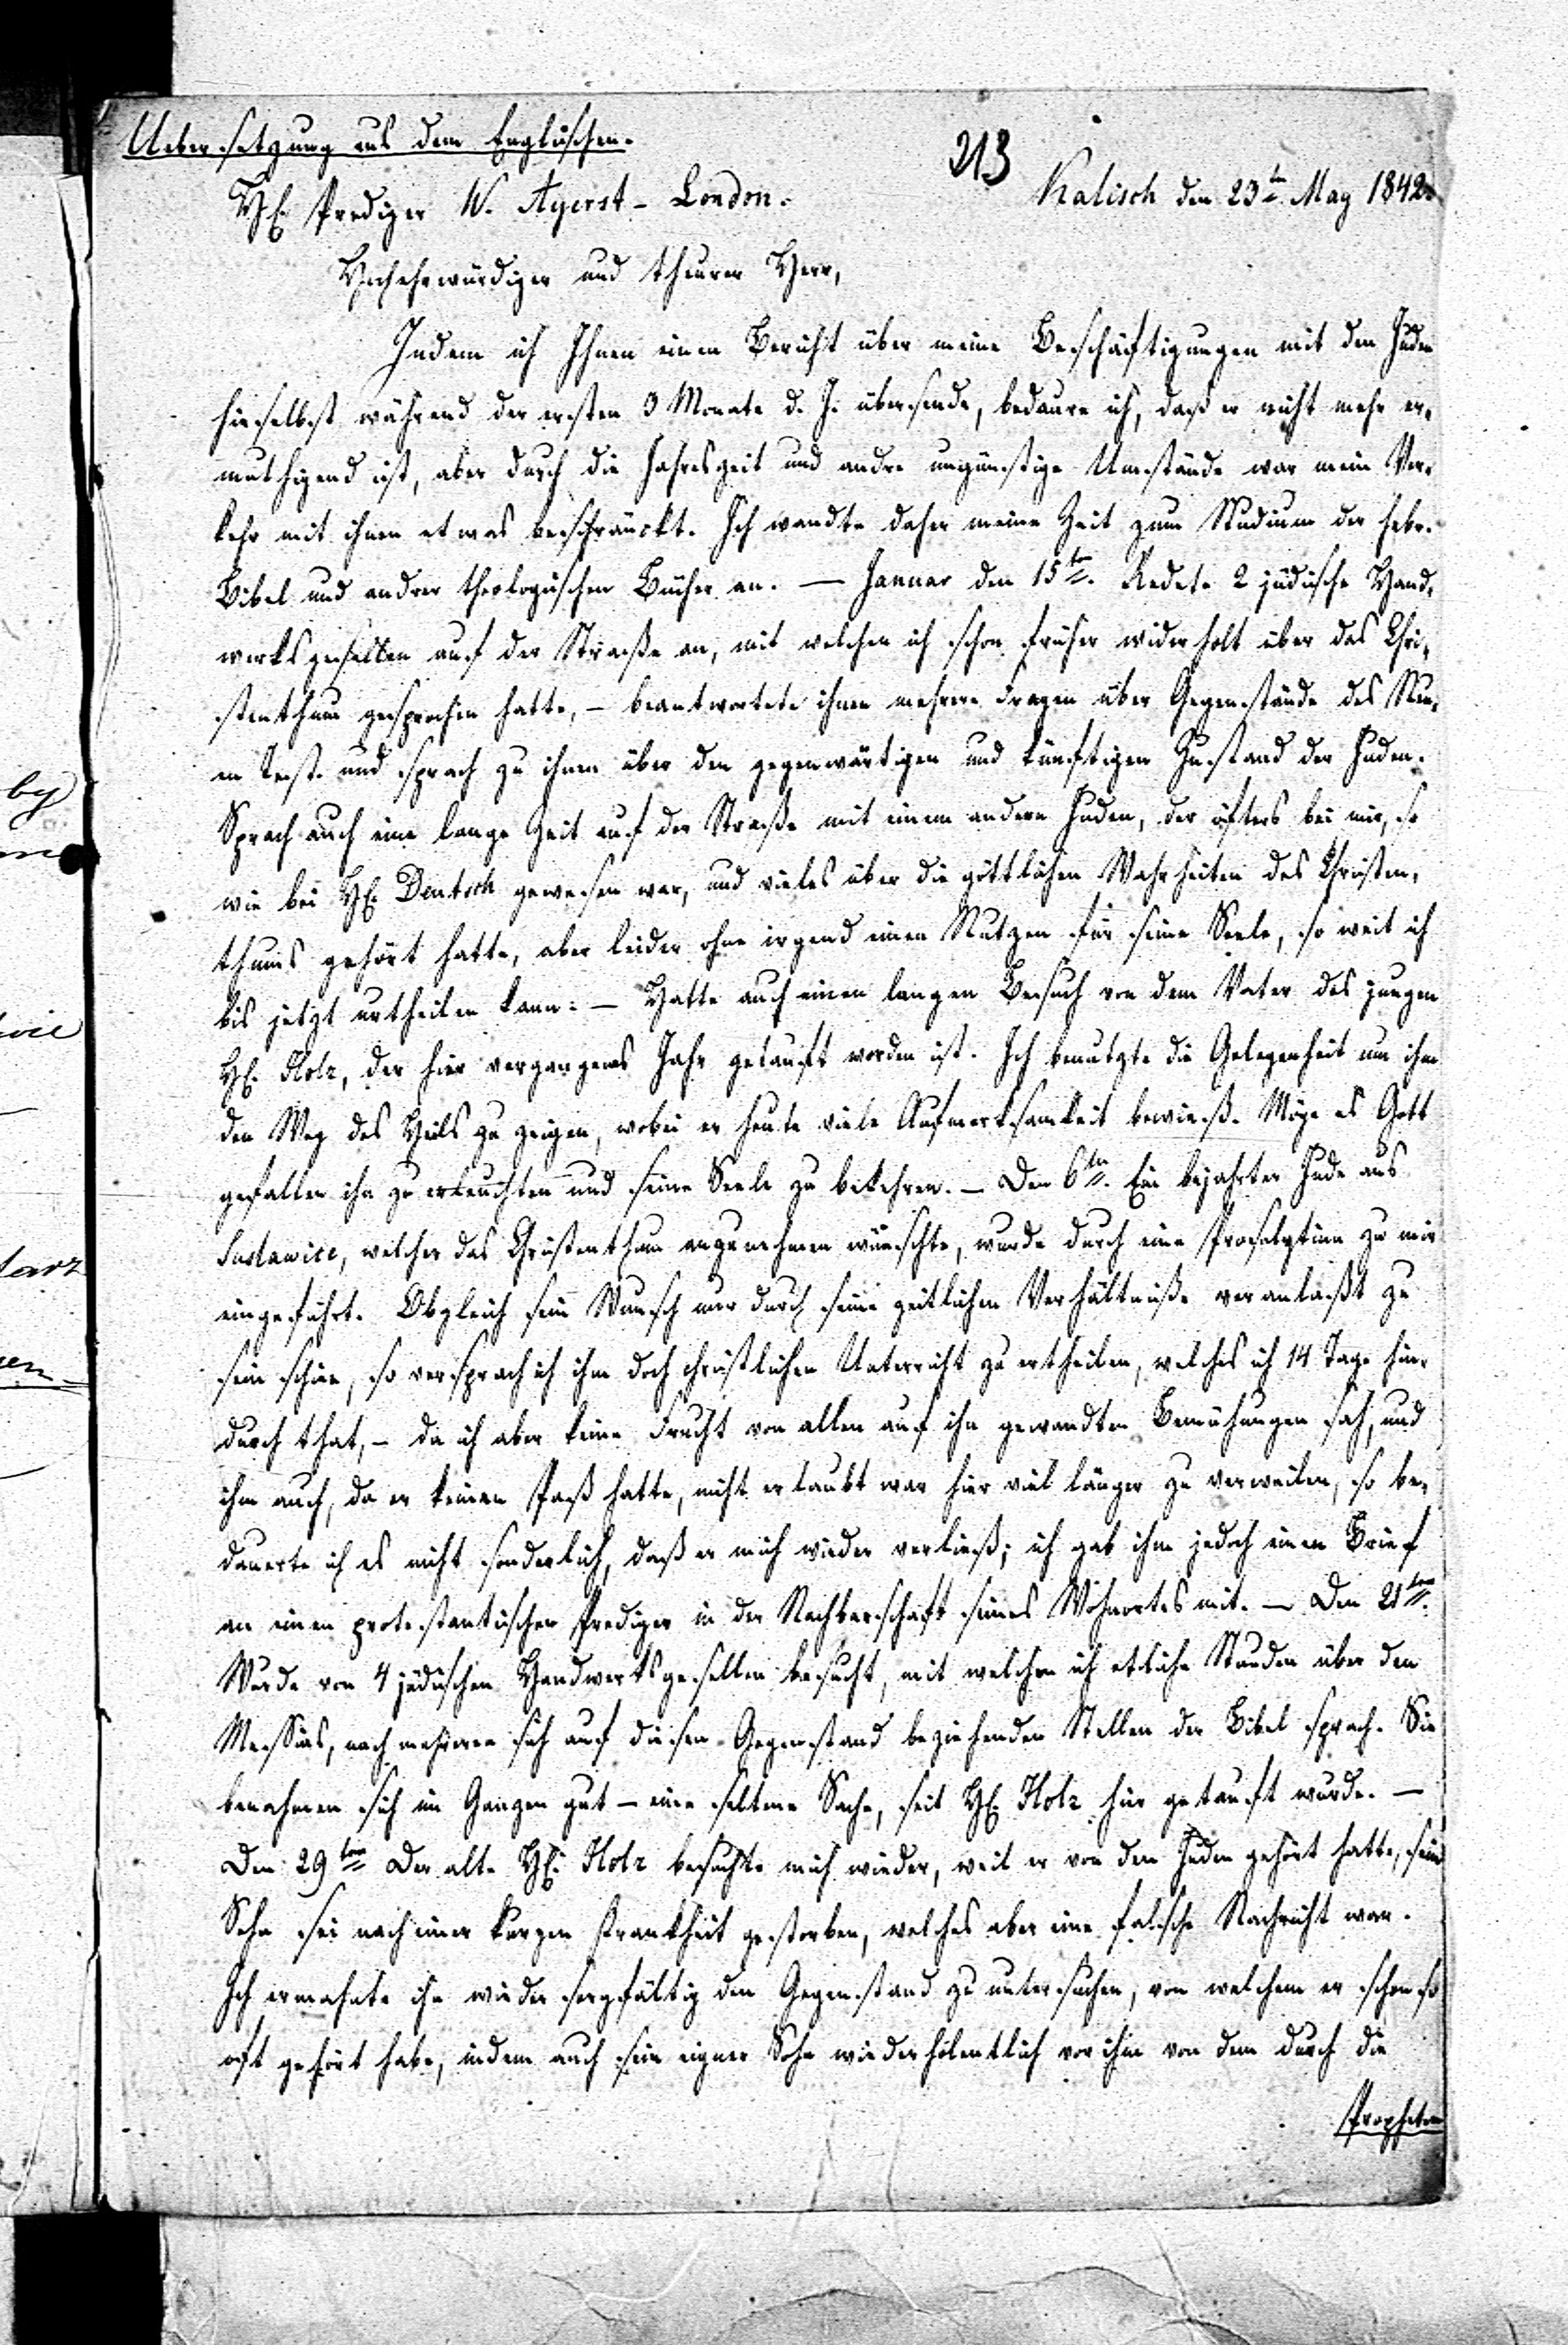 Uebersetzung aus dem Englischen.
213
Kalisch den 23ten May 1842.
H. Prediger W. Ayerst - London.
Hochehrwürdiger und theurer Herr,
Indem ich Ihnen einen Bericht über meine Beschäftigungen mit den Juden
hieselbst während der ersten 3 Monate d. J. übersende, bedaure ich, daß er nicht mehr er-
muthigend ist, aber durch die Jahreszeit und andre ungünstige Umstände war mein Ver-
kehr mit ihnen etwas beschränckt. Ich wandte daher meine Zeit zum Studium der hebr.
Bibel und andrer theologischen Bücher an. — Januar den 15ten. Redete 2 jüdische Hand-
werksgesellen auf der Straße an, mit welchen ich schon früher widerholt über das Chri-
stenthum gesprochen hatte, – beantwortete ihnen mehrere Fragen über Gegenstände des Neu-
en Test. und sprach zu ihnen über den gegenwärtigen und künftigen Zustand der Juden.
Sprach auch eine lange Zeit auf der Straße mit einem andern Juden, der öfters bei mir, so
wie bei H. Deutsch gewesen war, und vieles über die göttlichen Wahrheiten des Christen-
thums gehört hatte, aber leider ohne irgend einen Nutzen für seine Seele, so weit ich
bis jetzt urtheilen kann. — Hatte auch einen langen Besuch von dem Vater des jungen
H. Holz, der hier vergangenes Jahr getauft worden ist. Ich benutzte die Gelegenheit um ihm
den Weg des Heils zu zeigen, wobei er heute viele Aufmerksamkeit bewieß. Möge es Gott
gefallen ihn zu erleuchten und seine Seele zu bekehren. — Den 6ten. Ein bejahrter Jude aus
welcher das Christenthum anzunehmen wünschte, wurde durch eine Proselytinn zu mir
eingeführt. Obgleich sein Wunsch nur durch seine zeitlichen Verhältniße veranlaßt zu
sein schien, so versprach ich ihm doch christlichen Unterricht zu ertheilen, welches ich 14 Tage hin-
durch that, – da ich aber keine Frucht von allen auf ihn gewandten Bemühungen sah, und
ihm auch, da er keinen Paß hatte, nicht erlaubt war hier viel länger zu verweilen, so be-
dauerte ich es nicht sonderlich, daß er mich wieder verließ; ich gab ihm jedoch einen Brief
an einen protestantischen Prediger in der Nachbarschaft seines Wohnortes mit. — Den 21ten.
Wurde von 4 jüdischen Handwerksgesellen besucht, mit welchen ich etliche Stunden über den
Messias, nach mehreren sich auf diesen Gegenstand beziehenden Stellen der Bibel sprach. Sie
benahmen sich im Ganzen gut – eine seltene Sache, seit H. Holz hier getauft wurde. —
Den 29ten Der alte H. Holz besuchte mich wieder, weil er von den Juden gehört hatte, sein
Sohn sei nach einer kurzen Krankheit gestorben, welches aber eine falsche Nachricht war.
Ich ermahnte ihn wieder sorgfältig den Gegenstand zu untersuchen, von welchem er schon so
oft gehört habe, indem auch sein eigner Sohn wiederholentlich vor ihm von dem durch die
Propheten
by